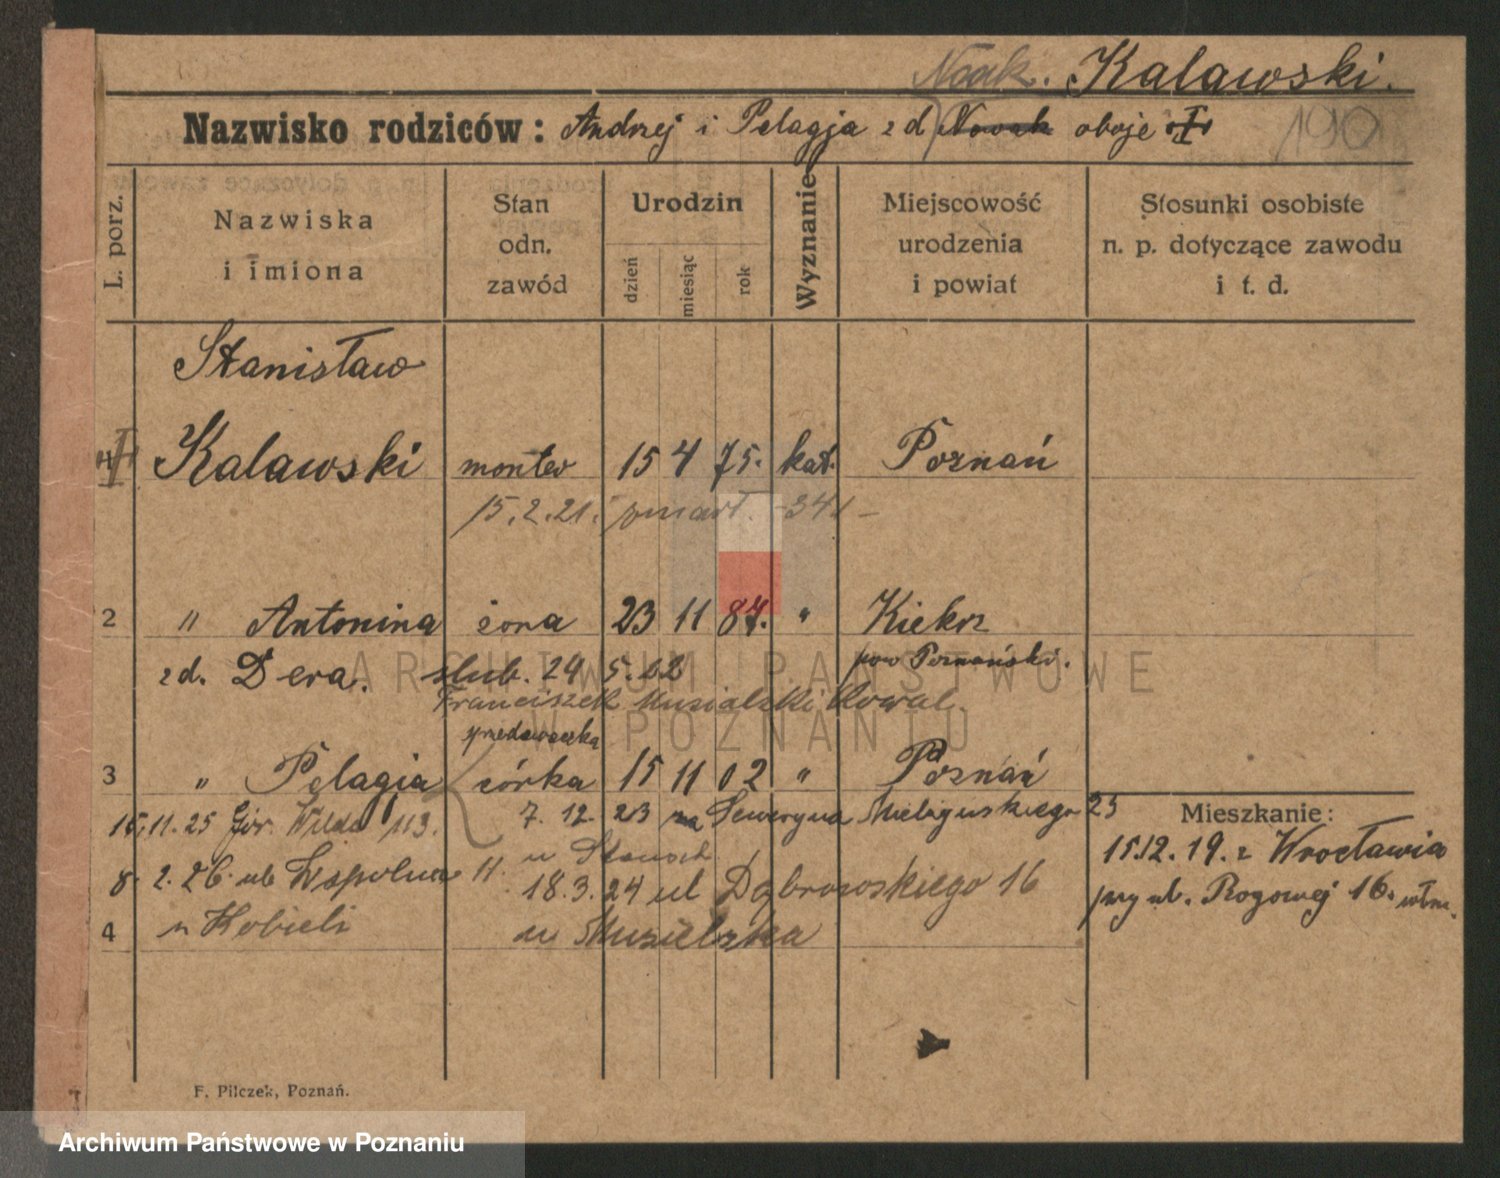 Noak. Kalawski.
Nazwisko rodziców: Andrzej i Pelagja z d Nowak oboje
190
L. porz.
Nazwiska i imiona
Stan odn. zawód
Urodzin
dzień
miesiąc
rok
Wyznanie
Miejscowość urodzenia i powiat
Stosunki osobiste n. p. dotyczące zawodu i t. d.
Stanisław
Kalawski monter 15 4 75. kat. Poznań
15.2.21. zmarł. -341-
2 " Antonina żona 23 11 84. " Kiekrz
z d. Dera. ślub. 24 5.02 pow Poznański.
Franciszek Musialski Kowal.
spedawaczka
3 " Pelagia córka 15 11 02 " Poznań
15.11.25 Gór. Wilda 113. 7. 12. 23 na Seweryna Mielżyńskiego 23
Mieszkanie:
15.12.19. z Wrocławia
8. 2. 26. ul. Wspólna 11. 18.3.24 ul Dąbrowskiego 16
przy ul. Rogowej 16.
4 u Kobieli u Musielska
F. Pilczek, Poznań.
ARCHIWUM PAŃSTWOWE
W POZNANIU
Archiwum Państwowe w Poznaniu